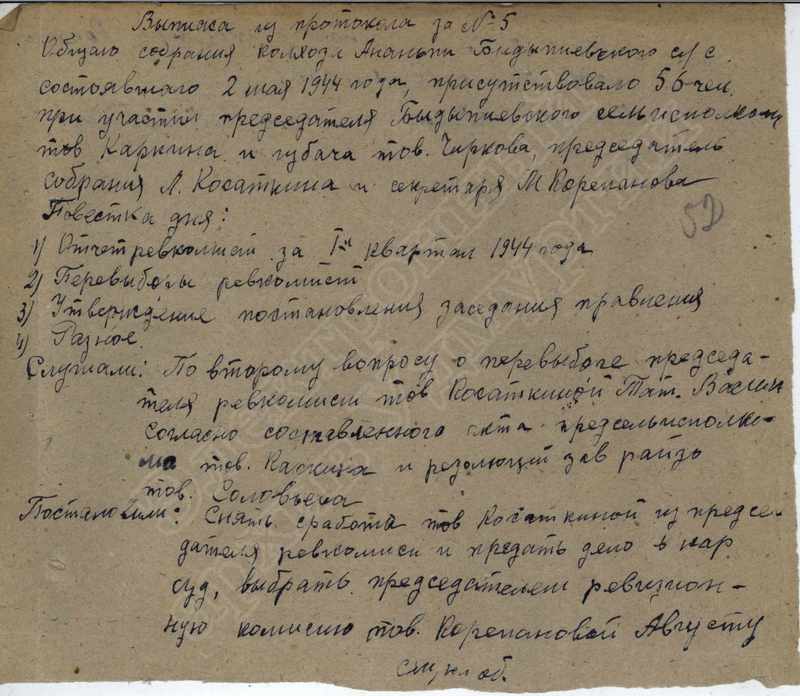 Выписса из протокола за № 5
Общаго собрания колхоза Ананьпи Быдыпиевского с/с.
состоявшаго 2 мая 1944 года, присутствовало 56 чел.
при участии председателя Быдыпиевского сельисполком
тов Каркина и избача тов. Чиркова, председатель
собрания Л. Косаткина и секретаря М Корепанова
52
Повестка дня:
1) Отчет ревкомисий за I-й квартал 1944 года
2) Перевыборы ревкомисий
3) Утверждение постановления заседания правления
4) Разное.
Слушали: По второму вопросу о перевыборе председа-
теля ревкомиси тов Косаткиной Тат. Васил
согласно составленного акта предсельисполко-
ма тов. и резолюций зав райзо
тов. Соловьева
Постановили: Снять сработа тов Косаткиной из предсе-
дателя ревкомиси и предать дело в нар
суд, выбрать председателем ревизион-
ную комисию тов. Корепановой Августу